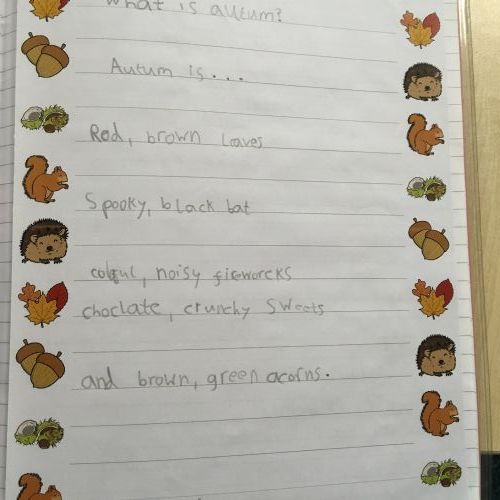 What is autum?
Autum is...
Red, brown leaves
Spooky, black bat
noisy fireworcks
choclate, crunchy sweets
and brown, green acorns.